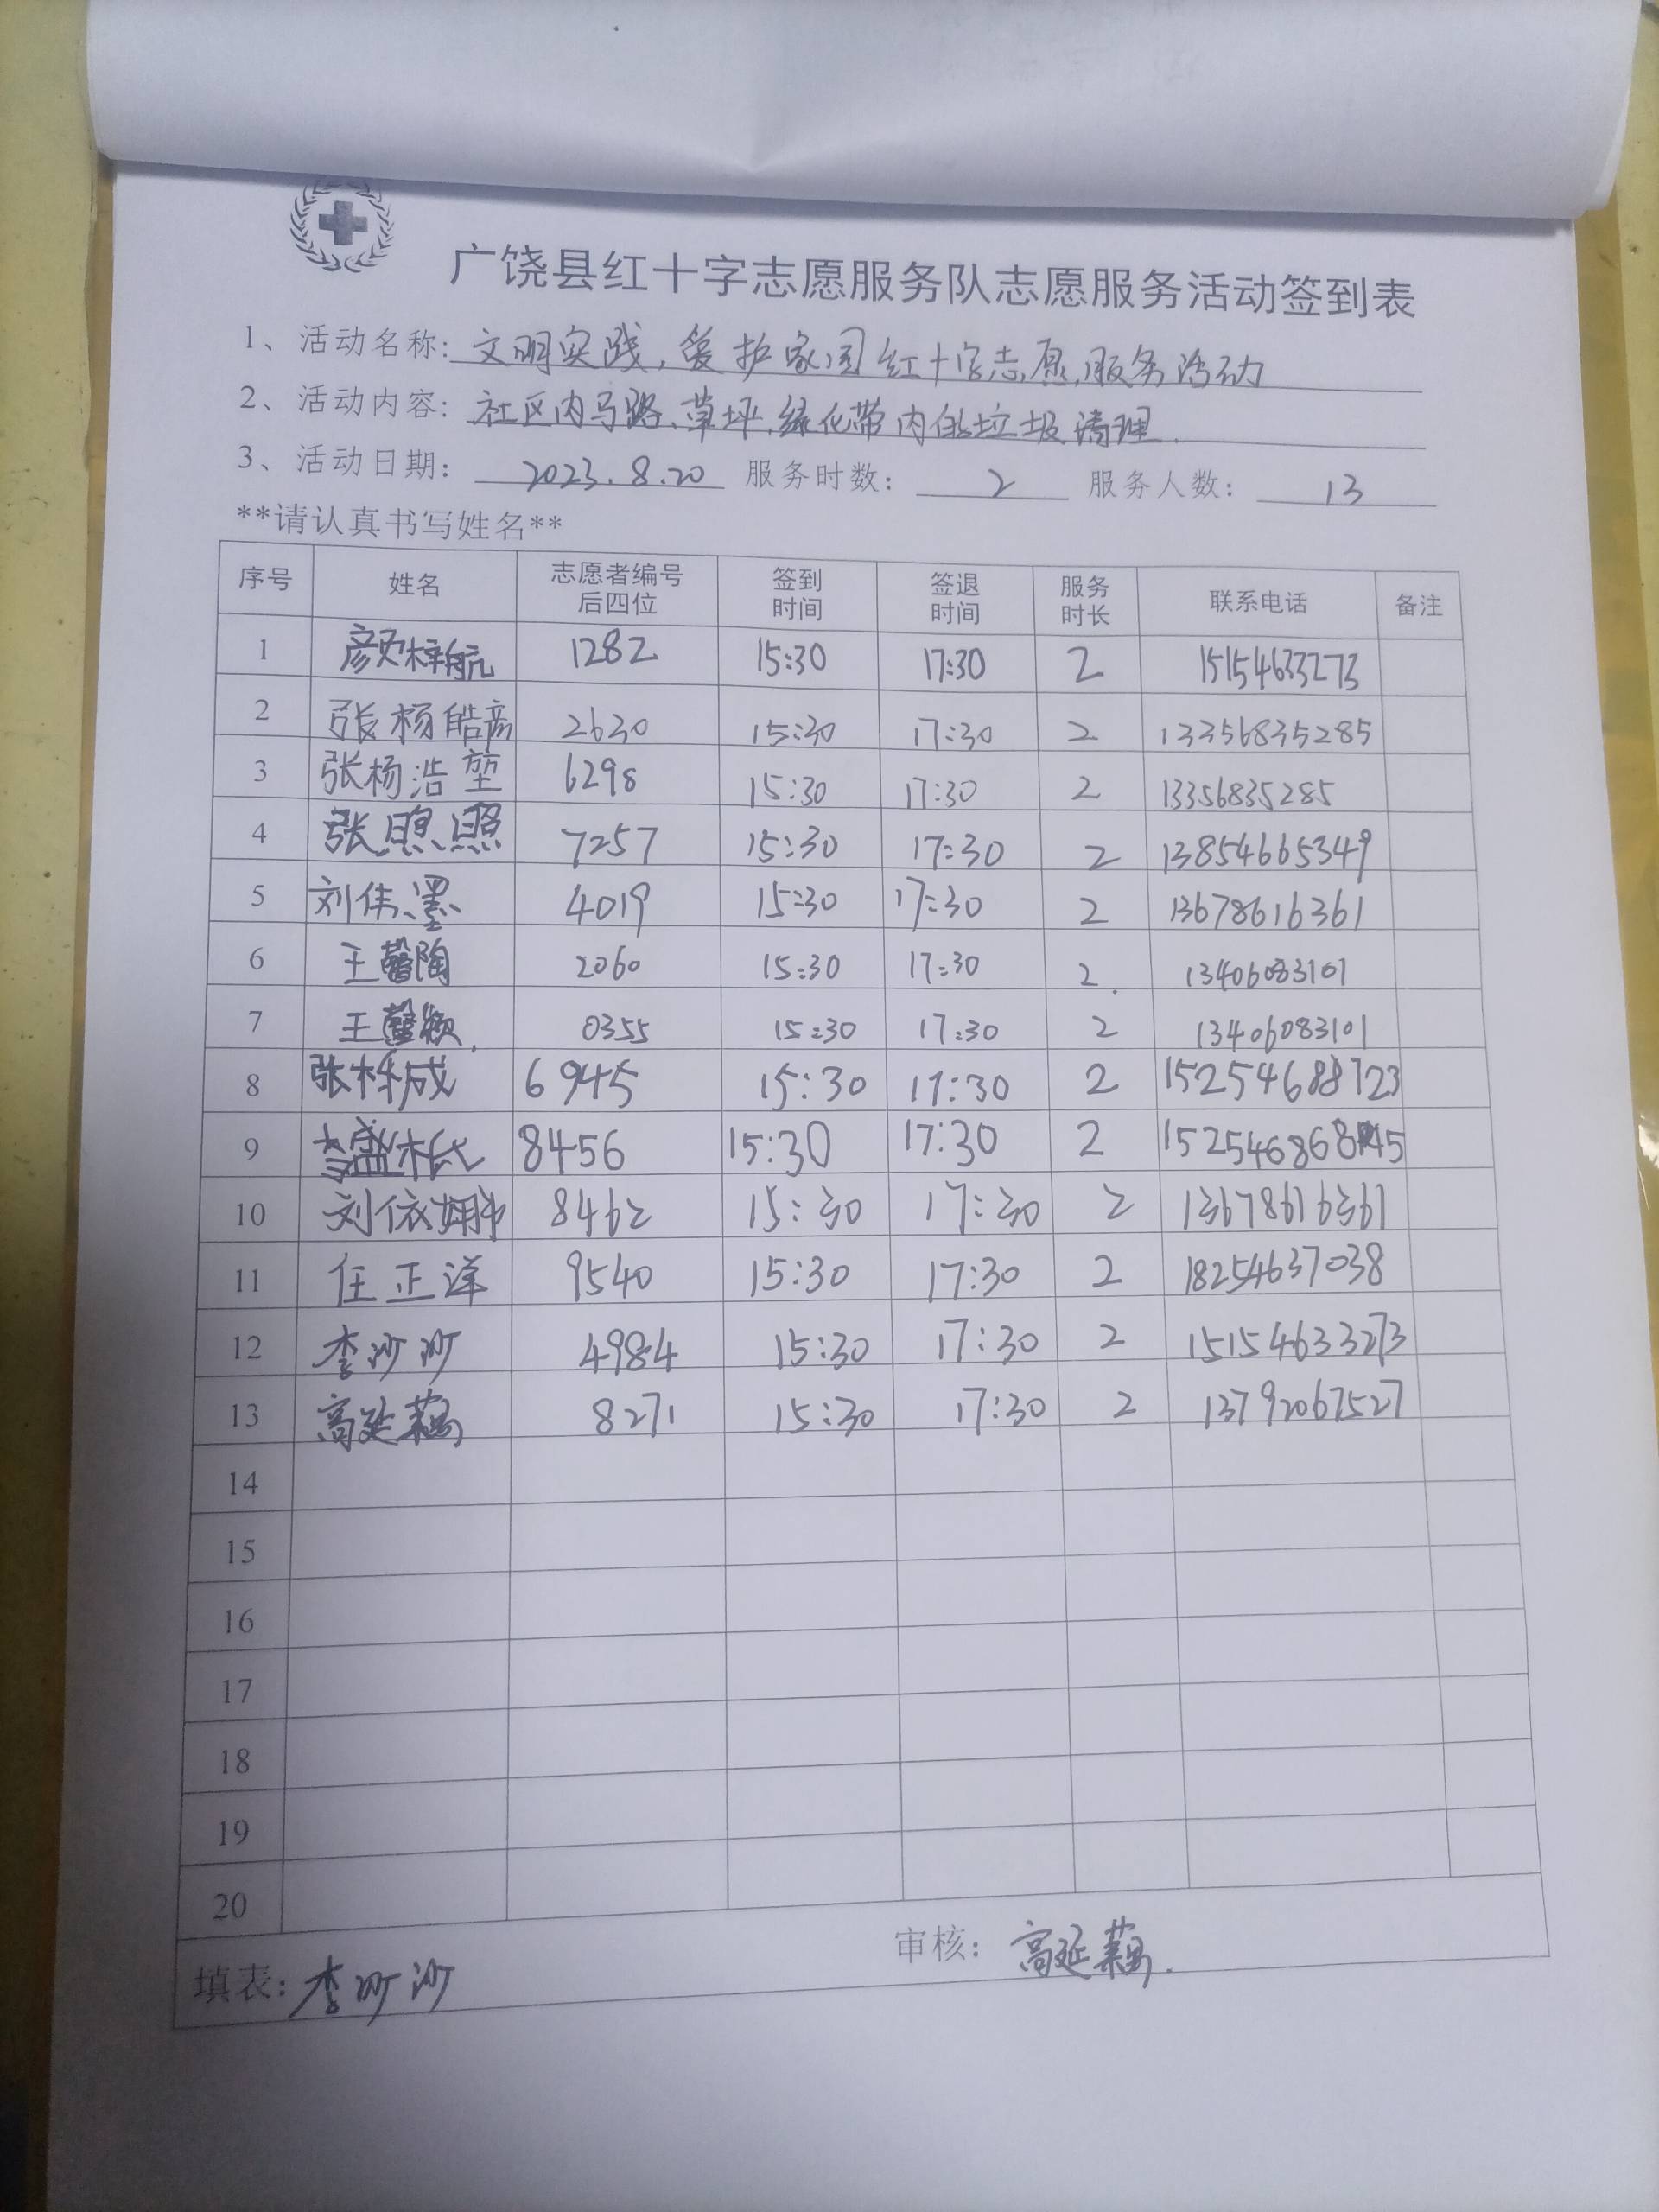 广饶县红十字志愿服务队志愿服务活动签到表
1、活动名称: 文明实践,爱护家园红十字志愿服务活动
2、活动内容: 社区内马路、草坪,绿化带内的垃圾清理.
3、活动日期: 2023.8.20 服务时数: 2 服务人数: 13
**请认真书写姓名**
序号 姓名 志愿者编号后四位 签到时间 签退时间 服务时长 联系电话 备注
1 颜梓航 1282 15:30 17:30 2 15154633273
2 张杨皓彦 2630 15:30 17:30 2 13356835285
3 张杨浩堃 6298 15:30 17:30 2 13356835285
4 张照 7257 15:30 17:30 2 13854665349
5 刘伟墨 4019 15:30 17:30 2 13678616361
6 王馨陶 2060 15:30 17:30 2 13406083101
7 王馨颖 0355 15:30 17:30 2 13406083101
8 张栎成 6945 15:30 17:30 2 15254688723
9 李盛 8456 15:30 17:30 2
10 刘依 8462 15:30 17:30 2 13678616361
11 任正洋 9540 15:30 17:30 2 18254637038
12 李沙沙 4984 15:30 17:30 2 15154633273
13 高延藕 8271 15:30 17:30 2 13792067527
14
15
16
17
18
19
20
填表: 李沙沙 审核: 高延藕.